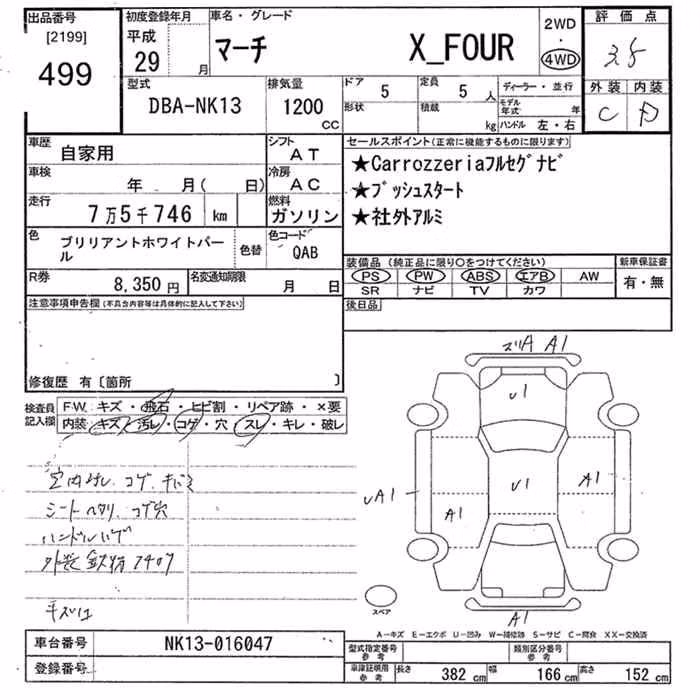 出品番号
[2199]
499
初度登録年月
平成
29 月
車名・グレード
マーチ X_FOUR
2WD
・
4WD
評価点
3.5
外装 内装
C D
型式
DBA-NK13
排気量
1200
CC
ドア 5
形状
定員 5 人
積載 kg
ディーラー・並行
モデル年式 年
ハンドル 左・右
車歴
自家用
シフト
AT
車検
年 月( 日)
冷房
AC
走行
7万5千746 km
燃料
ガソリン
色
ブリリアントホワイトパール
色替
色コード
QAB
R券
8,350 円
名変通知期限
月 日
セールスポイント(正常に機能するものに限ります)
★Carrozzeriaフルセグナビ
★プッシュスタート
★社外アルミ
装備品 (純正品に限り○をつけてください)
PS PW ABS エアB AW
SR ナビ TV カワ
新車保証書
有・無
後日品
注意事項申告欄(不具合内容等は具体的に記入して下さい)
修復歴 有〔箇所 〕
検査員
記入欄
F.W. キズ・飛石・ヒビ割・リペア跡・×要
内装 キズ・汚レ・コゲ・穴・スレ・キレ・破レ
シートヘタリ コゲ穴
ハンドルハゲ
A1
U1
U1
A1
UA1
A1
A1
スペア
A-キズ E-エクボ U-凹み W-補修跡 S-サビ C-腐食 XX-交換済
車台番号 NK13-016047
登録番号
型式指定番号
参考
類別区分番号
参考
車庫証明用
参考
長さ 382 cm 幅 166 cm 高さ 152 cm